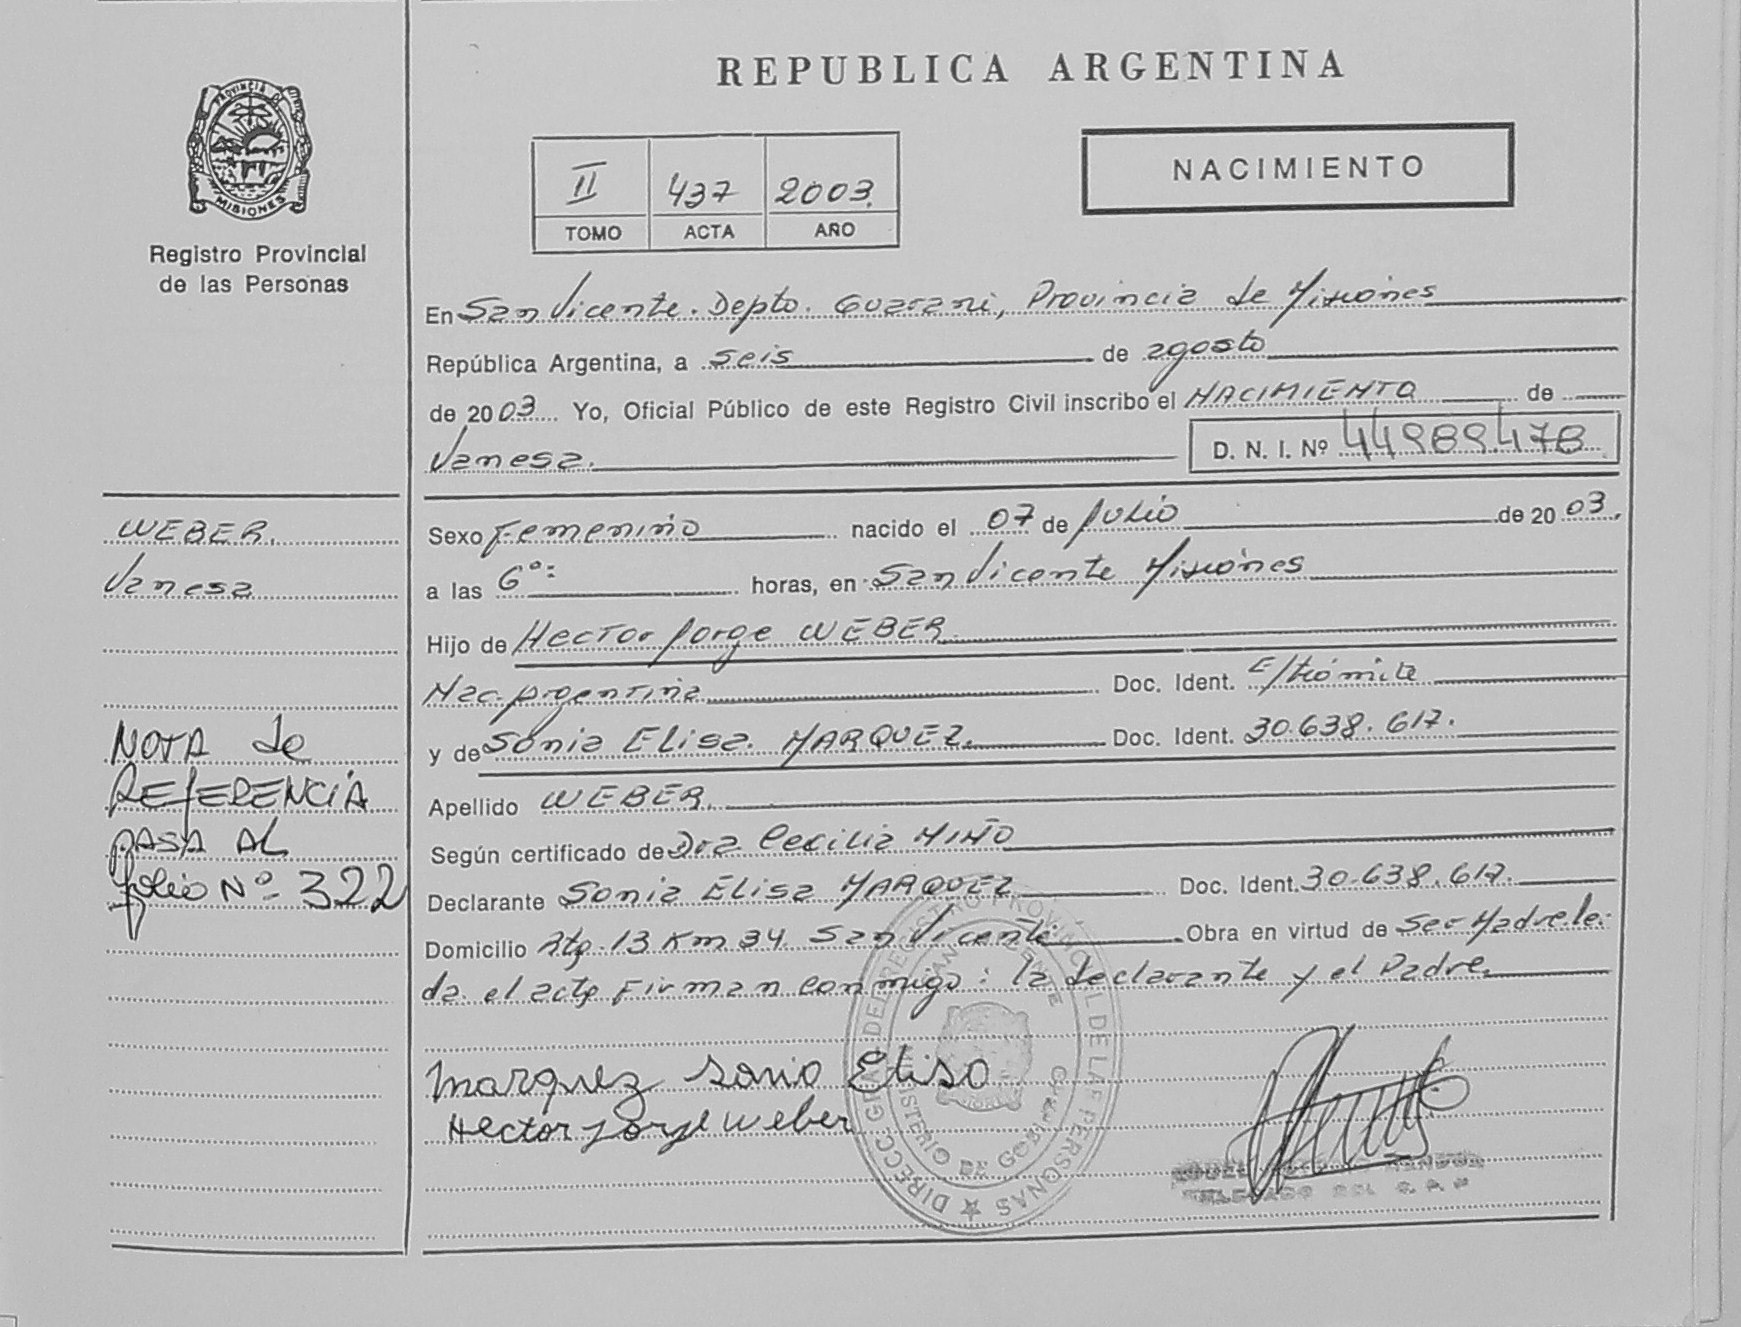 REPUBLICA ARGENTINA
PROVINCIA DE
MISIONES
Registro Provincial
de las Personas
II 437 2003.
TOMO ACTA AÑO
NACIMIENTO
En San Vicente. Depto. Guarani, Provincia de Misiones
República Argentina, a seis de agosto
de 2003 Yo, Oficial Público de este Registro Civil inscribo el NACIMIENTO de
Vanesa. D. N. I. Nº 44989.478
WEBER.
Vanesa
NOTA de
REFERENCIA
PASA AL
folio Nº 322
Sexo Femenino nacido el 07 de Julio de 2003.
a las 6º: horas, en San Vicente Misiones
Hijo de Hector Jorge WEBER.
Nac. Argentina Doc. Ident. E/trámite
y de Sonia Elisa. MARQUEZ. Doc. Ident. 30.638.617.
Apellido WEBER.
Según certificado de Dra Cecilia MIÑO
Declarante Sonia Elisa MARQUEZ Doc. Ident. 30.638.617.
Domicilio Rta. 13 Km 34. San Vicente Obra en virtud de Ser Madre.lei-
da. el acta Firman conmigo: la declarante y el Padre.
Marquez Sonia Elisa
Hector Jorge Weber
DIRECC. GRAL. DEL REGISTRO PROVINCIAL DE LAS PERSONAS
SAN VICENTE
MINISTERIO DE GOBIERNO